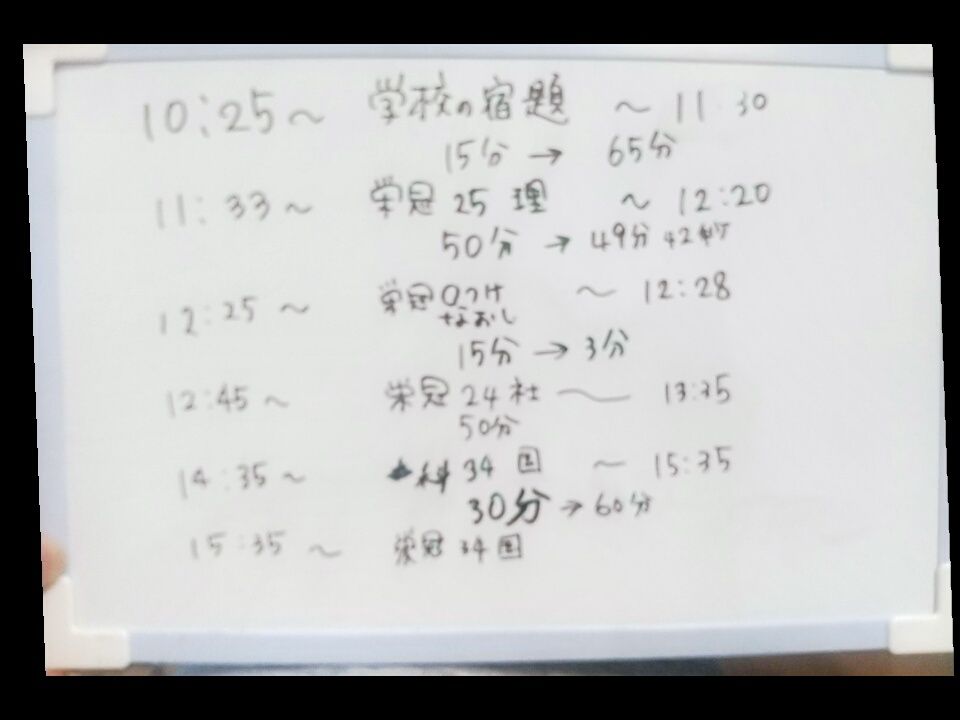 10:25～ 学校の宿題 ～11 30
15分 → 65分
11:33～ 栄冠 25 理 ～12:20
50分 → 49分 42秒
12:25～ 栄冠 〇つけ ～12:28
なおし
15分 → 3分
12:45～ 栄冠 24 社 ～ 13:35
50分
14:35～ 科 34 国 ～15:35
30分 → 60分
15:35～ 栄冠 34国